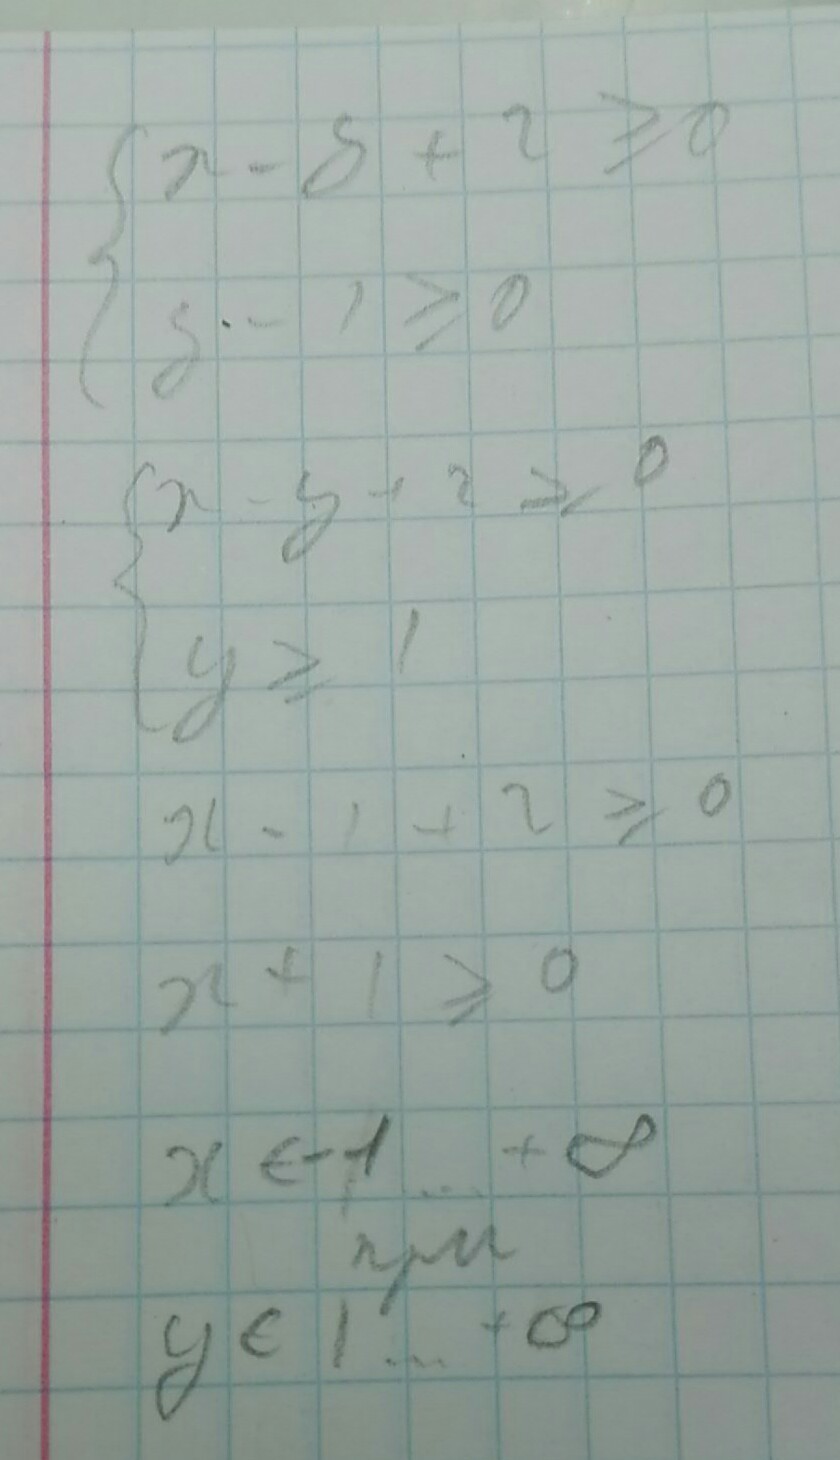 { x - y + 2 ⩾ 0
y - 1 ⩾ 0
{ x - y + 2 ⩾ 0
y ⩾ 1
x - 1 + 2 ⩾ 0
x + 1 ⩾ 0
x ∈ -1 ... + ∞
при
y ∈ 1 ... + ∞